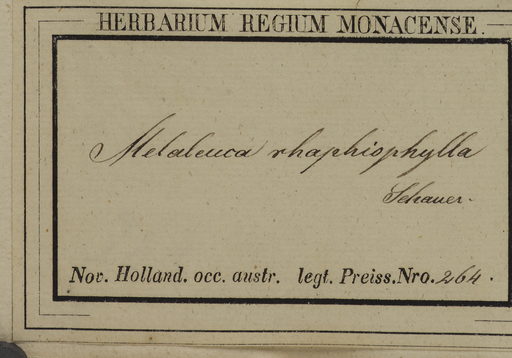 HERBARIUM REGIUM MONACENSE.
Melaleuca rhaphiophylla
Schauer.
Nov. Holland. occ. austr. legt. Preiss. Nro. 264.